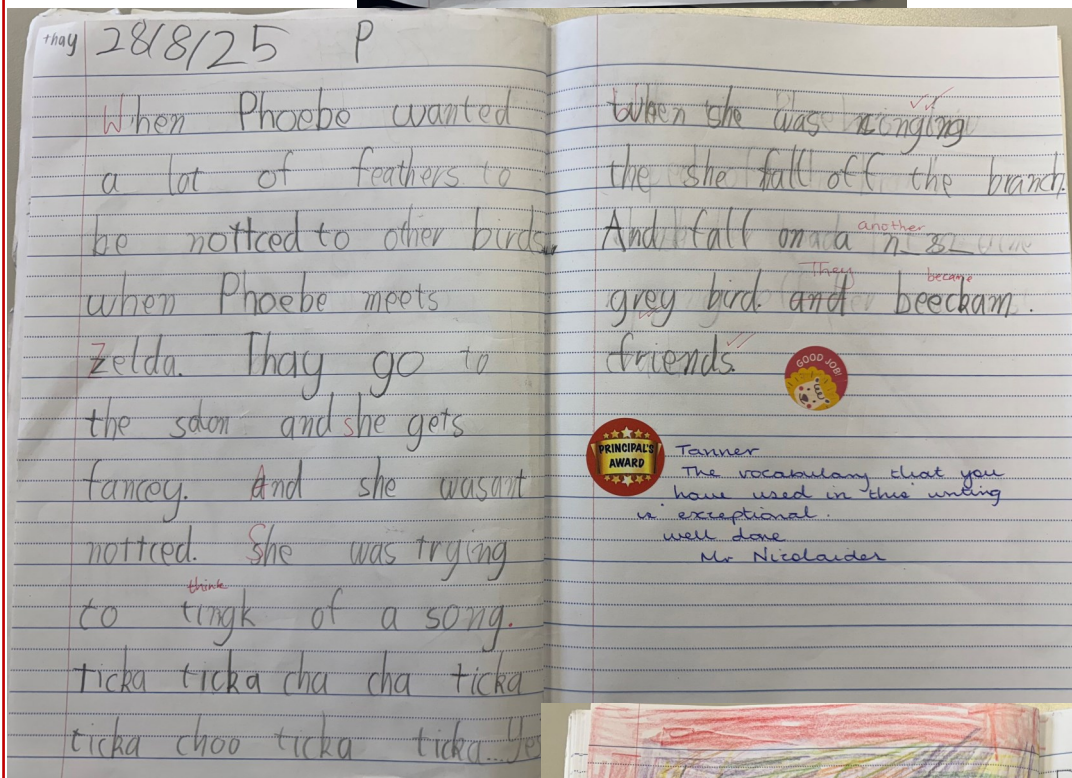 thay 28/8/25 P
When Phoebe wanted
a lot of feathers to
be nottced to other birds
when Phoebe meets
Zelda. Thay go to
the salon and she gets
fancey. And she wasant
nottced. She was trying
think
to tingk of a song.
ticka ticka cha cha ticka
ticka choo ticka ticka....Yes
When she was singing
the she fall off the branch.
another
And fall on a
They became
grey bird. and beeckam.
friends.
GOOD JOB!
PRINCIPAL'S
AWARD
Tanner
The vocabulary that you
have used in this writing
is exceptional.
well done
Mr Nicolaides